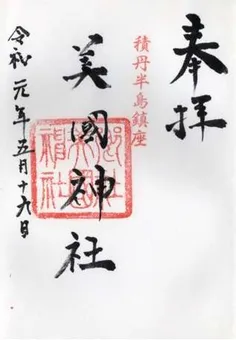 奉拝
積丹半島鎮座
美國神社
令和元年五月十六日